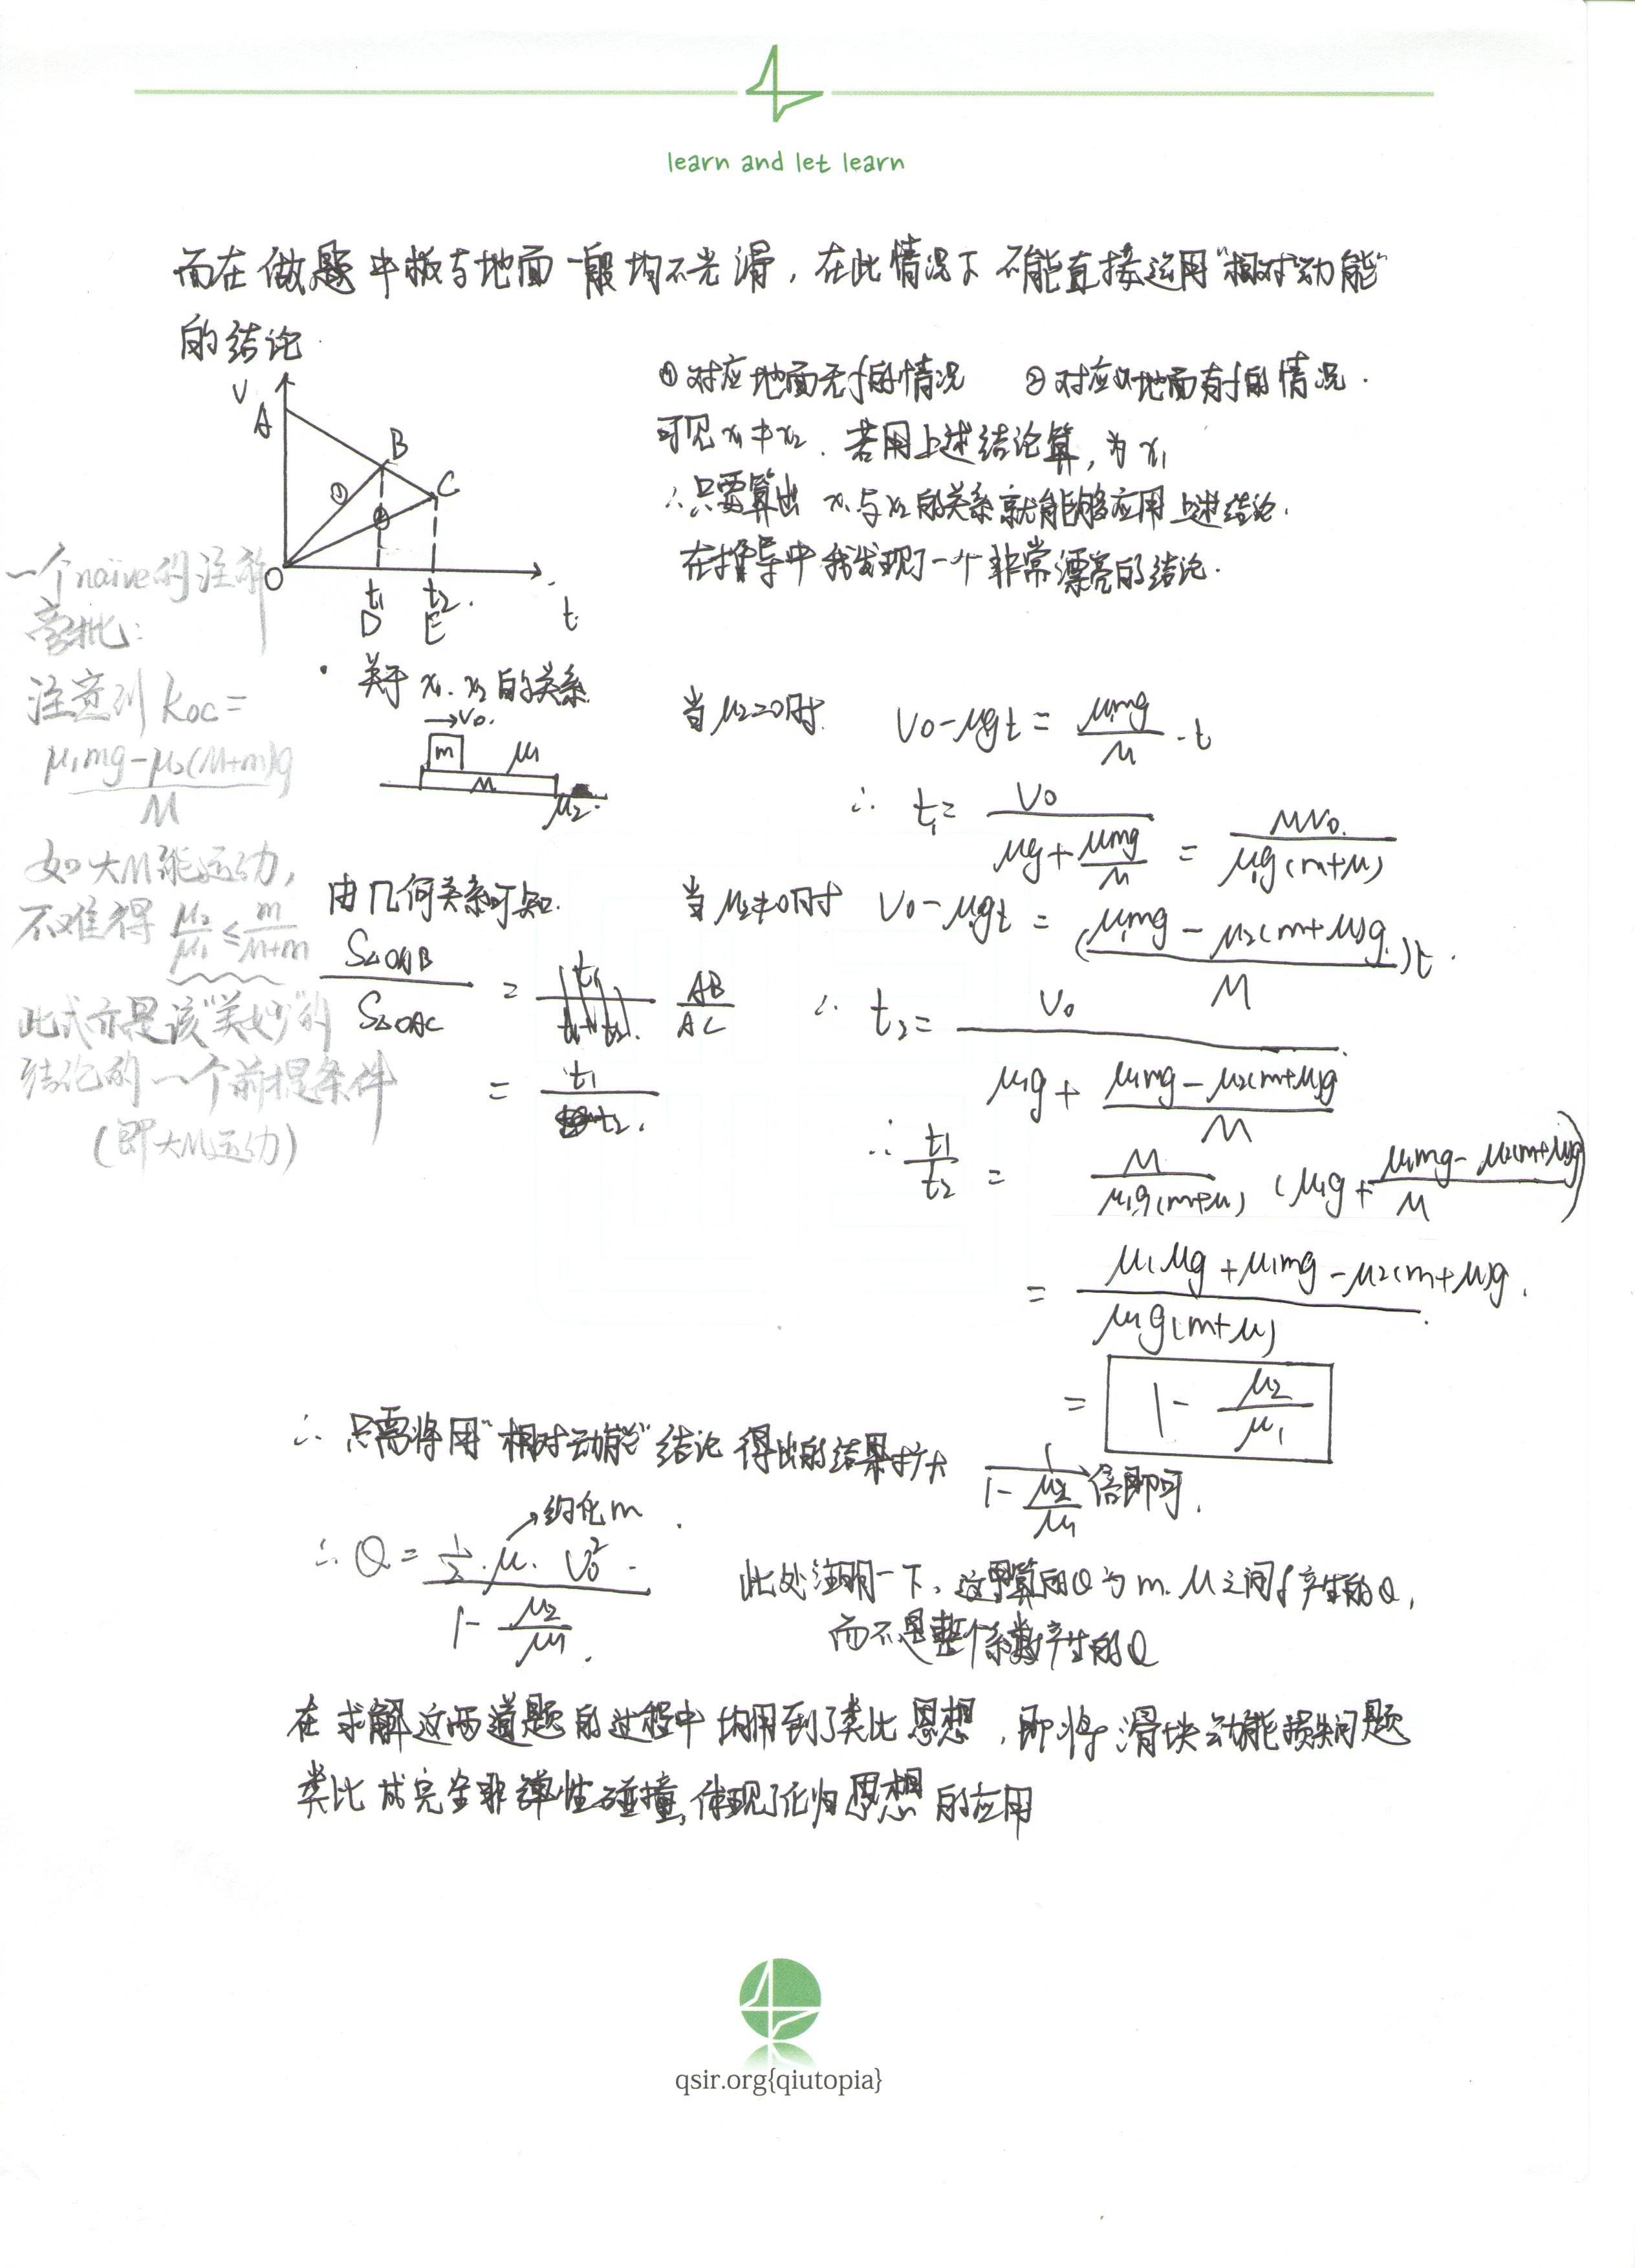 learn and let learn
而在做题中板与地面一般均不光滑，在此情况下不能直接运用“相对动能”
的结论
① 对应地面无f的情况 ② 对应地面有f的情况.
可见 x₁≠x₂. 若用上述结论算，为 x₁
∴只需算出 x₁与x₂的关系就能够应用上述结论.
在推导中我发现了一个非常漂亮的结论.
V
A
B
C
①
②
O
t₁
t₂.
t
D
E
一个naive的注解
旁批：
注意到 KOC=
μ₁mg-μ₂(M+m)g / M
如大M能运动，
不难得 μ₂/μ₁ ≤ m/(M+m)
此式亦是该“美妙”的
结论的一个前提条件
(即大M运动)
· 关于 x₁. x₂ 的关系
→V₀.
m
μ₁
M
μ₂.
当μ₂=0时. V₀-μ₁gt = μ₁mg/M · t
∴ t₁= V₀/(μ₁g+μ₁mg/M) = MV₀./(μ₁g(m+M))
由几何关系可知.
S△OAB/S△OAC = AB/AC
= t₁/t₂.
当μ₂≠0时 V₀-μ₁gt = ((μ₁mg-μ₂(m+M)g)/M)t.
∴ t₂= V₀/(μ₁g+(μ₁mg-μ₂(m+M)g)/M)
∴ t₁/t₂ = M/(μ₁g(m+M)) (μ₁g+(μ₁mg-μ₂(m+M)g)/M)
= (μ₁Mg+μ₁mg-μ₂(m+M)g)/(μ₁g(m+M)).
= 1-μ₂/μ₁
∴ 只需将用“相对动能”结论得出的结果扩大 1/(1-μ₂/μ₁) 倍即可.
→约化m
∴ Q = (½·μ·V₀²)/(1-μ₂/μ₁).
此处注明一下，这里算的Q为m.M之间f产生的Q，
而不是整个系统产生的Q
在求解这两道题的过程中均用到了类比思想，即将滑块动能损失问题
类比成完全非弹性碰撞，体现了化归思想的应用
qsir.org{qiutopia}